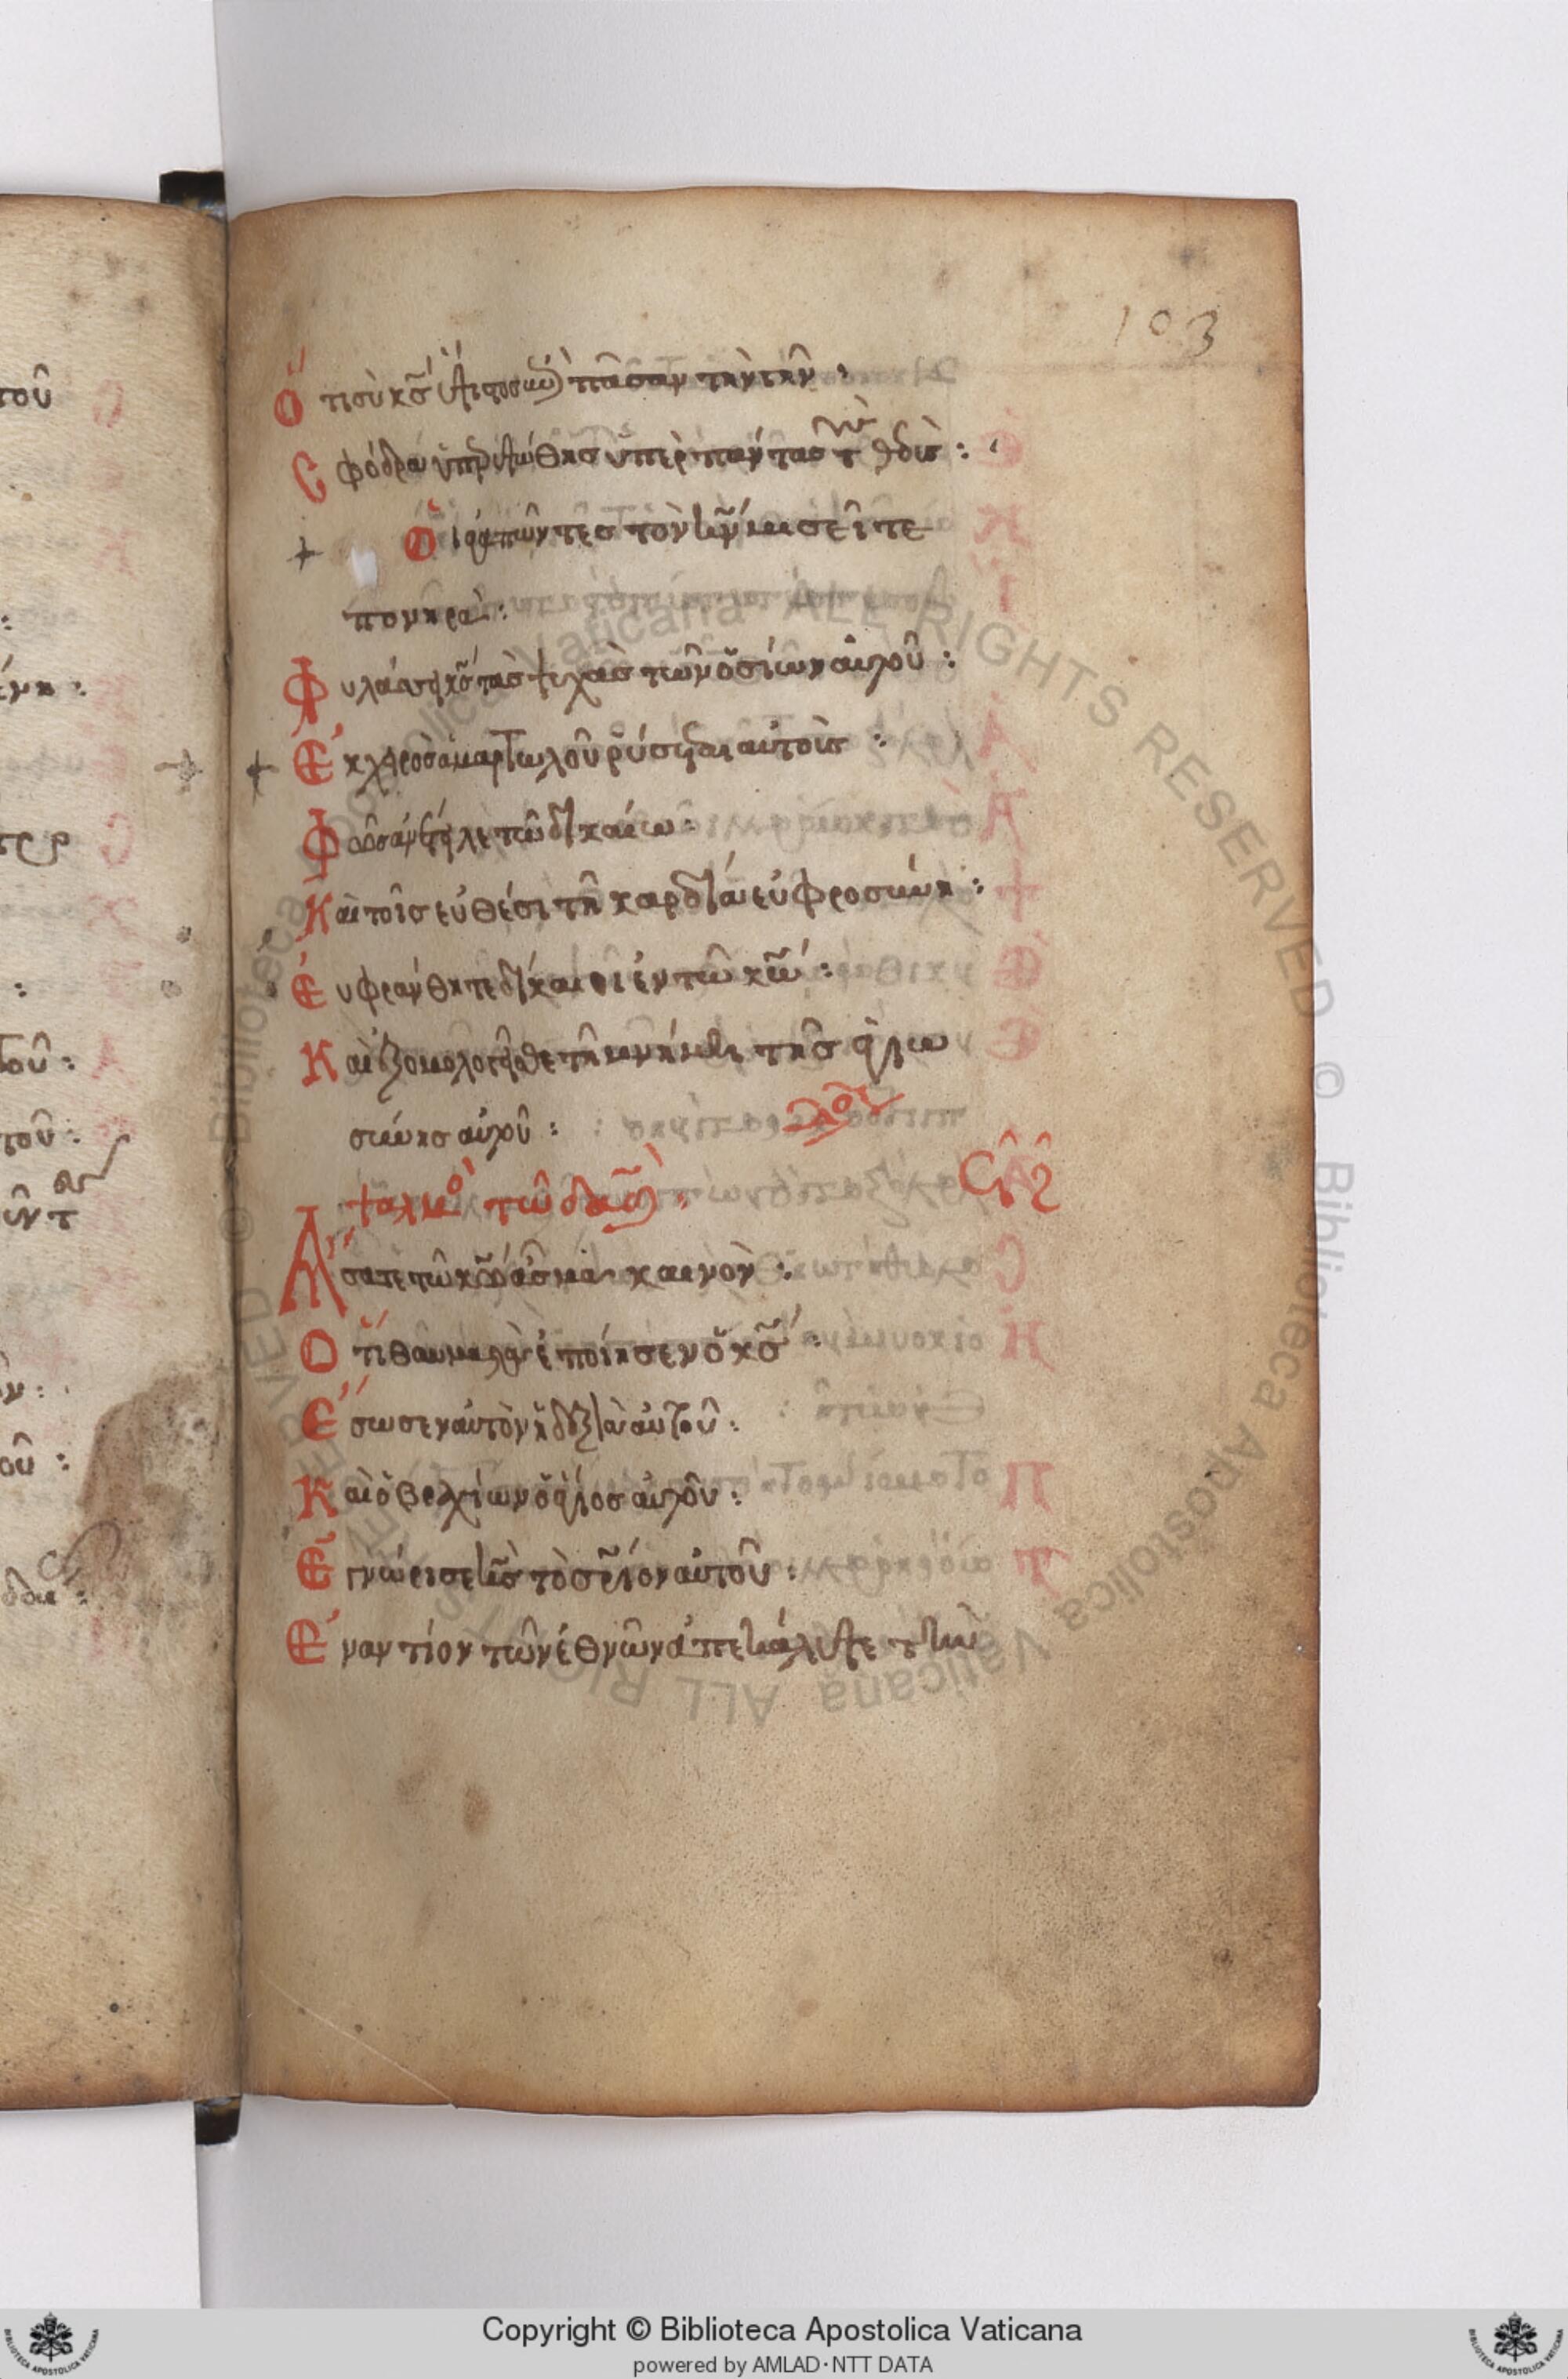 103
Ὅτι σὺ κ̅ς̅ ὕψιστος ἐπὶ πᾶσαν τὴν γῆν :
Σφόδρα ὑπερυψώθης ὑπὲρ πάντας τοὺς θεούς :
Οἱ ἀγαπῶντες τὸν κ̅ν̅ μισεῖτε
πονηρά :
Φυλάσσει κ̅ς̅ τὰς ψυχὰς τῶν ὁσίων αὐτοῦ :
Ἐκ χειρὸς ἁμαρτωλοῦ ῥύσεται αὐτούς :
Φῶς ἀνέτειλε τῶ δικαίω :
Καὶ τοῖς εὐθέσι τῆ καρδία εὐφροσύνη :
Εὐφράνθητε δίκαιοι ἐν τῶ κ̅ω̅ :
Καὶ ἐξομολογεῖσθε τῆ μνήμη τῆς ἁγιω
σύνης αὐτοῦ :
Ψαλμὸς τῶ δα̅δ̅ ϟζ
Ἄσατε τῶ κ̅ω̅ ἆσμα καινὸν :
Ὅτι θαυμαστὰ ἐποίησεν ὁ κ̅ς̅ :
Ἔσωσεν αὐτὸν ἡ δεξιὰ αὐτοῦ :
Καὶ ὁ βραχίων ὁ ἅγιος αὐτοῦ :
Ἐγνώρισε κ̅ς̅ τὸ σ̅ρ̅ιον αὐτοῦ :
Ἐναντίον τῶν ἐθνῶν ἀπεκάλυψε τὴν
Copyright © Biblioteca Apostolica Vaticana
powered by AMLAD·NTT DATA